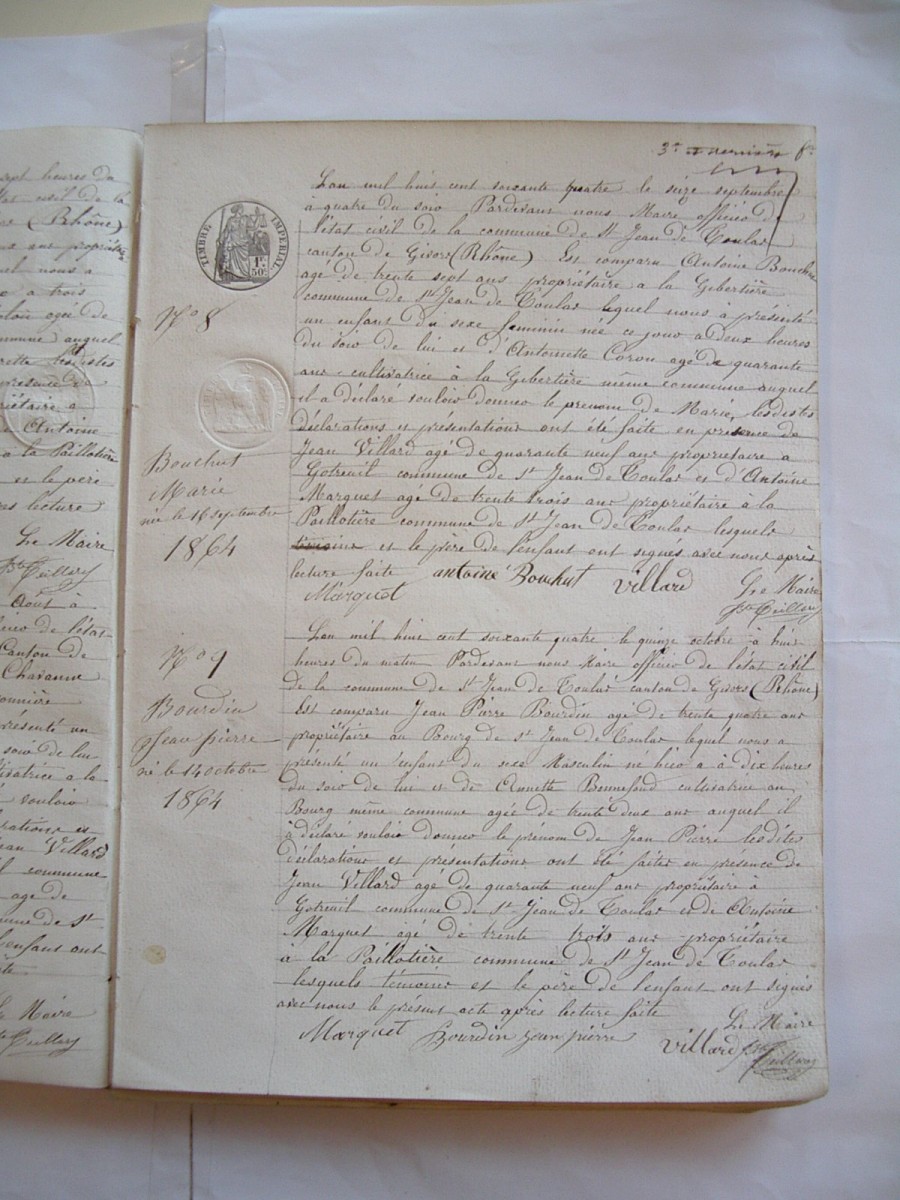 sept heures du
état civil de la
(Rhône)
ans propriétaire
quel nous a
a trois
agée de
commune) auquel
lesdites
présence de
propriétaire a
Antoine
à la Paillotière
et le père
lecture)
Le Maire
Août à
de l'état
Canton de
Chavanne
présenté un
soir de lui
cultivatrice a la
vouloir
déclarations et
Jean Villard
commune
age de
commune de St
l'enfant ont
Le Maire
3e et dernière fe
TIMBRE IMPERIAL
1F.
50C.
L'an mil huit cent soixante quatre le seize septembre
à quatre du soir Pardevant nous Maire officier de
l'état civil de la commune de St Jean de Toulas
canton de Givors (Rhône) Est comparu Antoine Bouchut
agé de trente sept ans propriétaire a la Gibertière
commune de St Jean de Toulas lequel nous a présenté
un enfant du sexe feminin née ce jour a deux heures
du soir de lui et d'Antoinette Coron agé de quarante
ans cultivatrice à la Gibertière même commune auquel
il a déclaré vouloir donner le prenom de Marie, lesdites
déclarations et présentations ont été faite en présence de
Jean Villard agé de quarante neuf ans propriétaire a
Gotreuil commune de St Jean de Toulas et d'Antoine
Marquet agé de trente trois ans propriétaire à la
Paillotière commune de St Jean de Toulas lesquels
et le père de l'enfant ont signés avec nous après
lecture faite antoine Bouchut Villard Le Maire
Marquet
No 8
Bouchut
Marie
née le 16 septembre
1864
L'an mil huit cent soixante quatre le quinze octobre à huit
heures du matin Pardevant nous Maire officier de l'état civil
de la commune de St Jean de Toulas canton de Givors (Rhône)
Est comparu Jean Pierre Bourdin agé de trente quatre ans
propriétaire au Bourg de St Jean de Toulas lequel nous a
présenté un enfant du sexe Masculin né hier a dix heures
du soir de lui et de Annette Bonnefond cultivatrice au
Bourg même commune agée de trente deux ans auquel il
à déclaré vouloir donner le prenom de Jean Pierre lesdites
déclarations et présentations ont été faites en presence de
Jean Villard agé de quarante neuf ans propriétaire à
Gotreuil commune de St Jean de Toulas et de Antoine
Marquet agé de trente trois ans propriétaire
à la Paillotière commune de St Jean de Toulas
lesquels témoins et le père de l'enfant ont signés
avec nous le présent acte après lecture faite
Marquet Bourdin jean pierre Villard Le Maire
No 9
Bourdin
Jean pierre
né le 14 octobre
1864